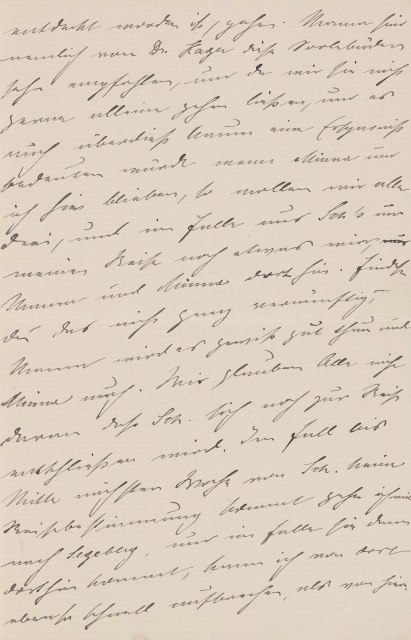 entdeckt worden ist, gehen. Mama sind
nemlich von Dr. Hager diese Soolebäder
sehr empfohlen, und da wir sie nicht
gerne alleine gehen ließen, und es
auch überdieß kaum eine Ersparniß
bedeuten würde wenn Minna und
ich hier blieben, so wollen wir alle
drei, und im Falle aus Sch's und
meiner Reise noch etwas wird,
Mama und Minna dort hin. Findest
du das nicht ganz vernünftig,
Mama wird es gewiß gut thun und
Minna auch. Wir glauben Alle nicht
daran daß Sch. sich noch zur Reise
entschließen wird. Im Fall bis
Mitte nächster Woche von Sch. keine
Reisebestimmung kommt gehe ich mit
nach Segeberg, und im Falle sie dann
dorthin kommt, kann ich von dort
ebenso schnell aufbrechen, als von hier